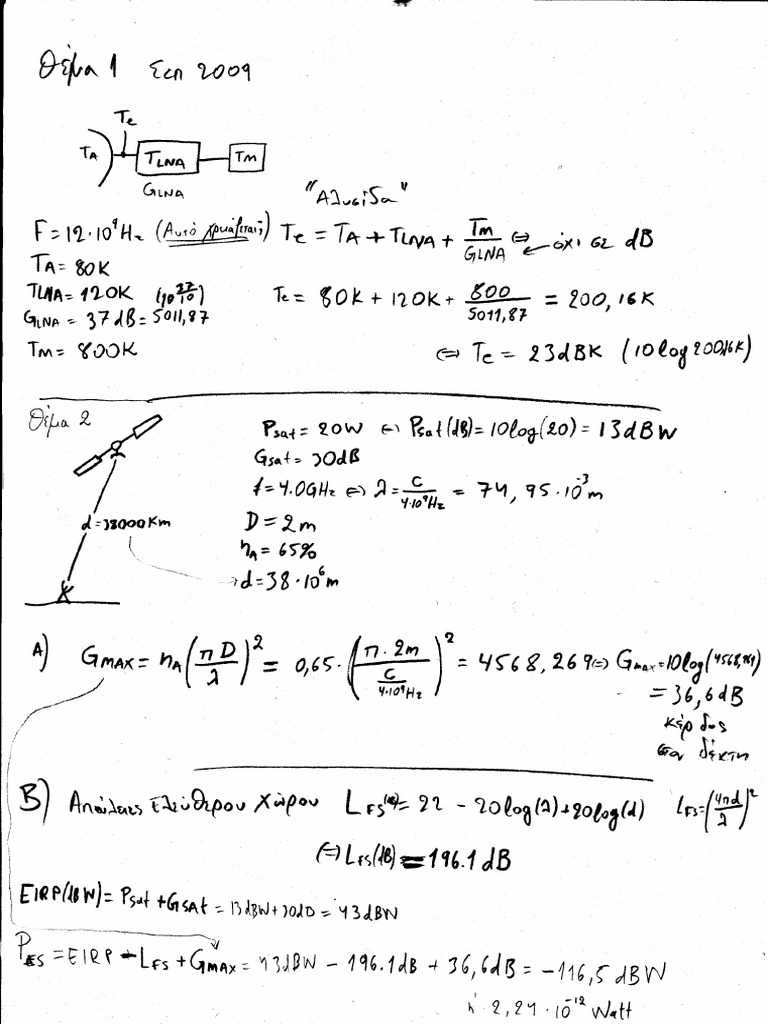 Θέμα 1 Σεπ 2009
Te
TA TLNA TM
GLNA
"Αλυσίδα"
F = 12·10⁹Hz (Αυτό χρειάζεται;) Te = TA + TLNA + TM/GLNA ⇔ όχι σε dB
TA = 80K
TLNA = 120K (10^(37/10)) Te = 80K + 120K + 800/5011,87 = 200,16K
GLNA = 37dB = 5011,87
TM = 800K ⇔ Te = 23dBK (10log200,16K)
Θέμα 2
Psat = 20W ⇔ Psat(dB) = 10log(20) = 13dBW
Gsat = 30dB
f = 4.0GHz ⇔ λ = C/4·10⁹Hz = 74,95·10⁻³m
d = 38000Km
D = 2m
ηA = 65%
d = 38·10⁶m
A) GMAX = ηA(πD/λ)² = 0,65·(π·2m/(C/4·10⁹Hz))² = 4568,269 ⇔ Gmax = 10log(4568,269)
= 36,6dB
κέρδος
στον δέκτη
B) Απώλειες Ελεύθερου Χώρου LFS(dB) = 22 - 20log(λ) + 20log(d) LFS = (4πd/λ)²
⇔ LFS(dB) = 196.1dB
EIRP(dBW) = Psat + GSAT = 13dBW + 30dB = 43dBW
PES = EIRP - LFS + GMAX = 43dBW - 196.1dB + 36,6dB = -116,5dBW
ή 2,24·10⁻¹² Watt